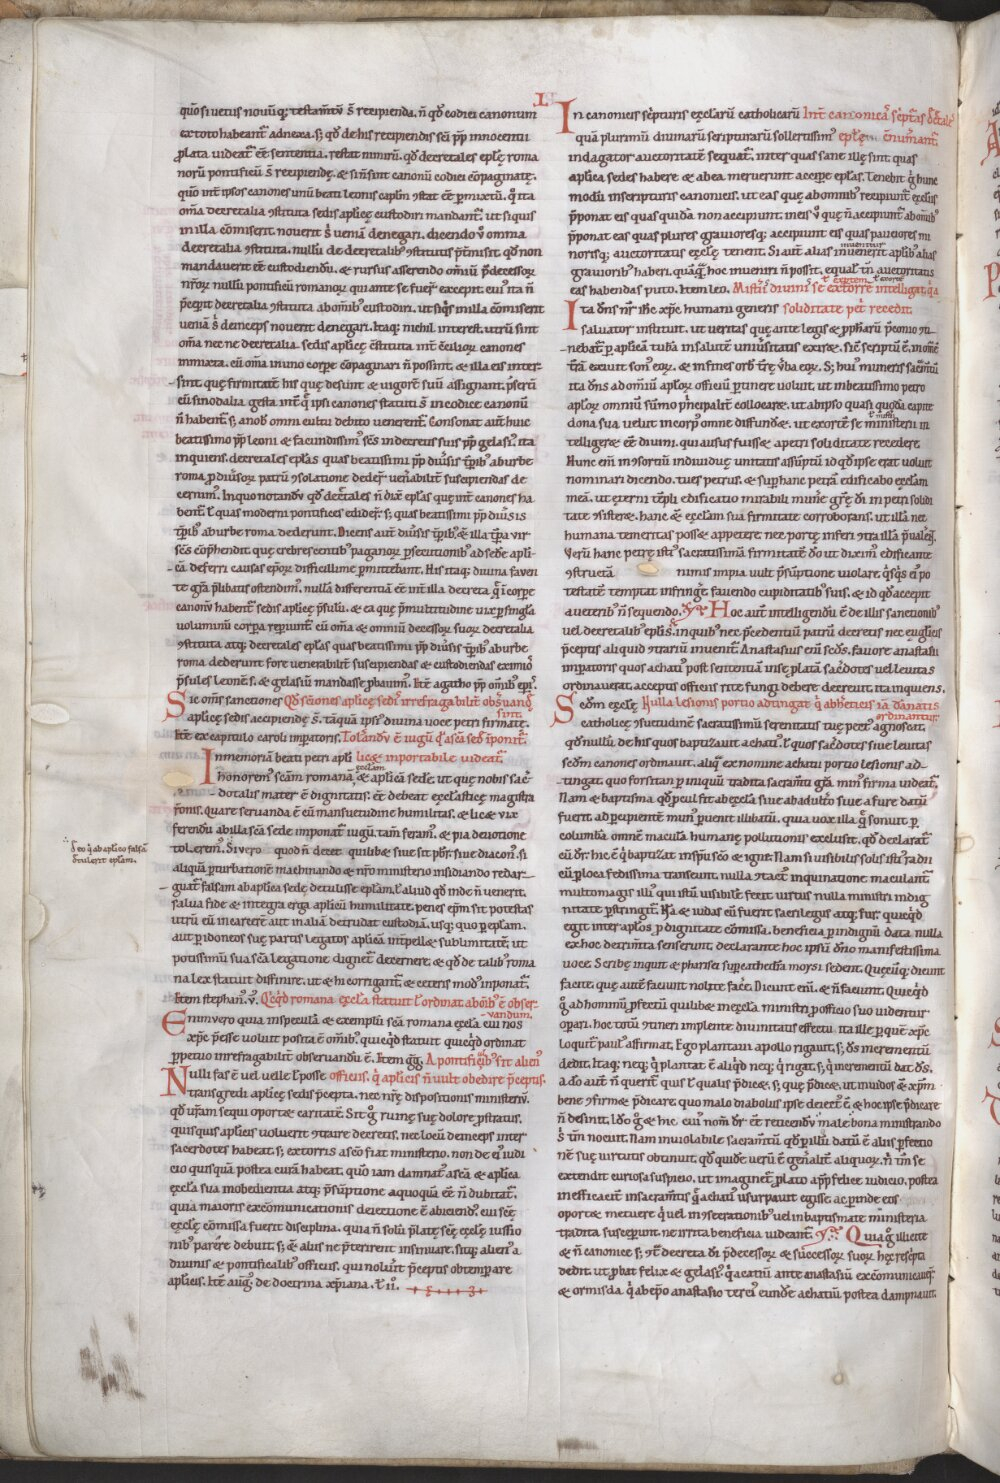 quo si uetus nouūq; testam̄tū s̄ recipienda. n̄ qđ codici canonum
ex toto habeant̄ adnexa. s; qđ de his recipiendis sc̄i pp̄ innocentii
ꝓlata uideat̄ eē sententia. restat nimirū. qđ decretales ep̄le roma
norū pontificū s̄ recipiendę. & si n̄ sint canonū codici cōpaginatę.
quo int̄ ipsos canones unū beati leonis cap̄lm ɔstat eē ꝑmixtū. q̊ ita
om̄a decretalia ɔstituta sedis aplicę custodiri mandant̄. ut siquis
in illa cōmiserit. nouerit s̄ ueniā denegari. dicendo ū omma
decretalia ɔstituta. nullū de decretalib; ɔstitutis p̄tmisit. qđ non
mandauerit eē custodiendū. & rursus asserendo om̄iū p̄decessoꝝ
nr̄oꝝ nullū pontificū romanoꝝ qui ante se fuer̄ excepit. cui ita n̄
p̄cepit decretalia ɔstituta ab om̄ib; custodiri. ut siq̄s in illa cōmiserit
ueniā s̄ deinceps nouerit denegari. Itaq; nichil interest. utrū sint
om̄a nec ne decretalia sedis aplicę cōstituta int̄ cōcilioꝝ canones
inmixta. cū om̄a in uno corpe cōpaginari n̄ possint. & illa eis inter
sint. quę firmitatē his quę desunt & uigorē suū assignant. p̄serū
cū sinodalia gesta int̄ q̄ ipsi canones statuti s̄ in codice canonū
n̄ habent̄. s; a nob̄ omni cultu debito uenerent̄. Consonat aut̄ huic
beatissimo pp̄ leoni & facundissim̄ sc̄s in decretis suis pp̄ gelasī. ita
inquiens. decretales ep̄las quas beatissimi pp̄ diūsis tp̄rib; ab urbe
roma ꝓ diūsoꝝ patrū ɔsolatione dederꝰ uen̄abilit̄ suscipiendas de
cernim̄. In quo notandū qđ decretales n̄ dixē ep̄las quę int̄ canones ha
bent̄. ł quas moderni pontifices edider̄. s; quas beatissimi pp̄ diūsis
tp̄rib; ab urbe roma dederunt. Dicens aut̄ diūsis tp̄rib;. & illa tp̄ra uir
sc̄s cōp̄hendit. quę crebrescentib; paganoꝝ p̄secutionib; ad sedē apli
cā deferri causas ep̄oꝝ difficillime ꝑmittebant. His itaq; diuina fauen
te gr̄a p̄libatis ostendim̄. nullā differentiā eē int̄ illa decreta. q̄ i corpe
canonū habent̄ sedis aplicę p̄sulū. & ea quę p̄ multitudine uix ꝑ singla
uoluminū corpa reperiunt̄. cū om̄a & omniū decessoꝝ suoꝝ decretalia
ɔstituta atq; decretales ep̄las quas beatissimi pp̄ diūsis tp̄rib; ab urbe
roma dederunt fore uenerabilit̄ suscipiendas & custodiendas eximiō
p̄sules leonē s. & gelasiū mandasse ꝓbauim̄. Itē agatho pp̄ om̄ib; ep̄i.
Sic om̄s sanctiones Qđ sāctiones aplicę sedis irrefragabilit̄ obs̄uandę
aplicę sedis accipiendę s̄. tāquā ipsi diuina uoce petri firmatę. sint.
Itē ex capitulo caroli imp̄atoris. Tolerandū ē iugū qđ a scā sede iponit̄.
In memoriā beati petri apli licęt inportabile uideat̄
honorem scām romanā ęcclesiam & aplicā sedē. ut quę nobis sacˉ
dotalis mater ē dignitatis. eē debeat ęccl̄asticę magistra
rōnis. Quare seruanda ē cū mansuetudine humilitas. & licæt uix
ferendū ab illa sc̄a sede imponat̄ iugū. tam̄ feram̄. & pia deuotione
tolerem̄. Si uero quod n̄ decet quilibæt siue sit pb̄r siue diacon̄. si
aliquā ꝑturbationē machinando & nr̄o ministerio insidiando redar
guat̄ falsam ab aplica sede detulisse ep̄lam. ł aliud qđ inde n̄ uenerit.
salua fide & integra erga aplicū humilitate. penes ep̄m sit potestas
utrū eū incarceret aut in aliā detrudat custodiā. usq; quo ꝑ ep̄lam.
aut ꝑ idoneos suę partis legatos aplicā int̄pellæt sublimitatē. ut
potissimū sua sc̄a legatione dignet̄ decernere. & qđ de talib; roma
na lex statuit diffinire. ut & hi corrigant̄. & ceteris modꝰ inponat̄.
Item stephan̄. v. Qicqđ romana ęcl̄a statuit ł ordinat ab om̄ib; ē obser
Enimuero quia in specula & exemplū sc̄a romana ęcl̄a cui nos uandum.
xp̄c p̄esse uoluit posita ē om̄ib;. quicqđ statuit quicqđ ordinat
ꝑpetuo irrefragabilit̄ obseruandū ē. Item gḡ. A pontificalib; sit alien̄
Nulli fas ē uel uelle ł posse officiis. q̄ aplicis n̄ uult obedire p̄ceptis.
transgredi aplicę sedis p̄cepta. nec nr̄ę dispositionis ministeriū.
qđ ur̄am sequi oportæt caritatē. Sit g̊ ruinę suę dolore ꝓstratus.
quisquis aplicis uoluerit ɔtraire decretis. nec locū deinceps inter
sacerdotes habeat. s; extorris a sc̄o fiat ministerio. non de eiꝰ iudi
cio quisquā postea curā habeat. quō iam damnatꝰ a sc̄a & aplica
ęcl̄a sua inobedientia atq; p̄sūptione a quoquā eē n̄ dubitat̄.
quia maioris excōmunicationis deiectione ē abiciendꝰ cui sc̄ę
ęcl̄ę cōmissa fuerit disciplina. quia n̄ solū p̄latę sc̄ę ęcl̄ę iussio
nib; parēre debuit. s; & aliis ne p̄terirent insinuare. sitq; alienꝰ a
diuinis & pontificalib; officiis. qui noluit p̄ceptis obtemꝑare
aplicis. Itē aug̊. de doctrina xp̄iana. ł. ii.
ł eo q̄ ab aplico falsā
detulerit ep̄lam.
I
In canonicis sc̄ipturis ęccl̄arū catholicarū Int̄ canonicas sc̄iptas d̄cretales
quā plurimū diuinarū scripturarū sollertissimꝰ ep̄lę c̄numerant̄.
indagator auctoritatē sequat̄. inter quas sane illę sint quas
aplica sedes habere & ab ea meruerunt accipe ep̄las. Tenebit g̊ hunc
modū in scripturis canonicis. ut eas quę ab omnib; recipiunt̄ ęcclis
p̄ponat eis quas quidā non accipiunt. in eis ū quę n̄ accipiunt̄ ab om̄ib;
p̄ponat eas quas plures grauioresq; accipiunt eis quas pauciores mi
norisq; auctoritatis ęccl̄ę tenent. Si aut̄ alias inuenerit a plib; alias inueniuntur
a grauiorib; haberi. quāquā hoc inueniri n̄ possit. equal̄ tn̄ auctoritatis
eas habendas puto. Item leo. Misterii diuini se exortē intelligat q̄ a ł expertem ł exorrē
Ita dn̄s nr̄ ih̄c xp̄c humani generis soliditate petri recedit.
saluator instituit. ut ueritas quę ante legis & ꝓph̄arū p̄conio ɔti
nebat̄. ꝑ aplicā tubā in salutē uniūsitatis exiræt. sic̄ scriptū ē. in om̄ē
tr̄ā exiuit sonꝰ eoꝝ. & in fines orb̄ trę ūba eoꝝ. S; huiꝰ muneris sacm̄tū
ita dn̄s ad om̄iū aploꝝ officiū ꝑtinere uoluit. ut in beatissimo petro
aploꝝ omniū sūmo p̄ncipalit̄ collocaræt. ut ab ipso quasi quodā capite
dona sua uelut in corp̄ omne diffundæt. ut exortē se ministerii in ł misterii
telligeræt eē diuini. qui ausus fuissæt a petri soliditate recedere.
Hunc em̄ in ɔsortiū indiuiduę unitatis assūptū id qđ ipse erat uoluit
nominari dicendo. tu es petrus. & sup hanc petrā edificabo ęccl̄am
meā. ut ęterni tēpli edificatio mirabili mun̄e gr̄ę d̄i in petri solidi
tate ɔsisteræt. hanc & ęccl̄am sua firmitate corroborans. ut illā nec
humana temeritas possæt appetere. nec portę inferi ɔtra illā p̄ualerēt.
Verū hanc petrę istiꝰ sacratissimā firmitatē dō ut diximꝰ edificante
ɔstructā nimis impia uult p̄sūptione uiolare. q̄sq̄s eiꝰ po
testatē temptat infringē. fauendo cupiditatib; suis. & id qđ accepit
a ueterib; n̄ sequendo. Hoc aut̄ intelligendū ē de illis sanctionib;
uel decretalib; ep̄lis. in quib; nec p̄cedentiū patrū decretis nec euglicis
p̄ceptis aliquid ɔtrariū inuenit̄. Anastasius enī scd̄s. fauore anastasii
imp̄atoris quos achatiꝰ post sententiā in sę ꝓlatā sac̄dotes uel leuitas
ordinauerat. acceptis officiis rite fungi debere decreuit. ita inquiens.
Secdm ęccl̄ę Nulla lesionis portio adtingat q̄ ab hereticis iā dānatis
catholicę ɔsuetudinē sacratissimū serenitatis tuę pect̄ agnoscat. ordinantur.
qđ nullū de his quos baptizauit achatiꝰ. ł quos sac̄dotes siue leuitas
secdm canones ordinauit. aliq̄ ex nomine achatii portio lesionis ad
tingat. quo forsitan ꝑ iniquū tradita sacram̄ti gr̄a minꝰ firma uideat̄.
Nam & baptisma qđ ꝓcul sit ab ęcl̄a siue ab adultro siue a fure datū
fuerit. ad ꝑcipientē munꝰ ꝑuenit illibatū. quia uox illa q̄ sonuit ꝑ
columbā. omnē maculā humanę pollutionis exclusit. qđ declarat̄
cū dr̄. hic ē q̄ baptizat in sp̄u sc̄o & igni. Nam si uisibilis solis isti radii
cū ꝑ loca fedissima transeunt. nulla ɔtactꝰ inquinatione maculant̄.
multo magis illiꝰ qui istū uisibilē fecit. uirtus nulla ministri indig
nitate ꝑstringit̄. Nā & iudas cū fuerit sacrilegus atq; fur. quicqđ
egit inter aplos ꝓ dignitate cōmissa. beneficia ꝑ indignū data. nulla
ex hoc detrim̄ta senserunt. declarante hoc ipsū dn̄o manifestissima
uoce. Scribę inquit & pharisei sup cathedrā moysi sedent. Quęcūq; dicunt
facite. quę aut̄ faciunt nolite facē. Dicunt em̄. & n̄ faciunt. Quicqđ
g̊ ad hominū ꝓfectū quilibæt in ęcl̄a ministri ꝓ officio suo uidentur
oꝑari. hoc totū ɔtineri implente diuinitatis effectu. ita ille ꝑ quē xp̄c
loquit̄ paulꝰ affirmat. Ego plantaui. apollo rigauit. s; d̄s incrementū
dedit. Itaq; neq; q̄ plantat ē aliqd. neq; q̄ rigat. s; q̄ incrementū dat d̄s.
adō aut̄ n̄ querit̄ quis ł qualis p̄dicæt. s; quē p̄dicæt. ut inuidos & xp̄m
bene ɔfirmæt p̄dicare. quo malo diabolus ipse deiectꝰ ē. & hoc ipse p̄dicare
n̄ desinit. Ido g̊ & hic cui nom̄ dr̄ eē reticendū male bona ministrando
s̄ tm̄ nocuit. Nam inuiolabile sacram̄tū qđ ꝑ illū datū ē. aliis ꝑfectio
nē suę uirtutis obtinuit. qđ quidē uerū ē gen̄alit̄. aliquoꝝ n̄ tm̄ se
extendit curiosa suspicio. ut imaginet̄ ꝓlato a pp̄ felice iudicio. postea
inefficacit̄ in sacram̄tis q̄ achatiꝰ usurpauit egisse. ac ꝑ inde eos
oportæt metuere q̄ uel in ɔsecrationib; uel in baptismate ministeria
tradita susceperunt. ne irrita beneficia uideant̄. Quia g̊ illicite
& n̄ canonice s; ɔt̄ decreta d̄i p̄decessoꝝ & successoꝝ suoꝝ hęc rescripta
dedit. ut ꝓbat felix & gelasiꝰ. q̄ acatiū ante anastasiū excōmunicauer̄.
& ormisda. q̄ ab ep̄o anastasio terciꝰ eundē achatiū postea dampnauit.